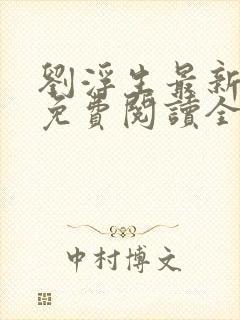 劉浮生最新
免費閱讀全
中村博文